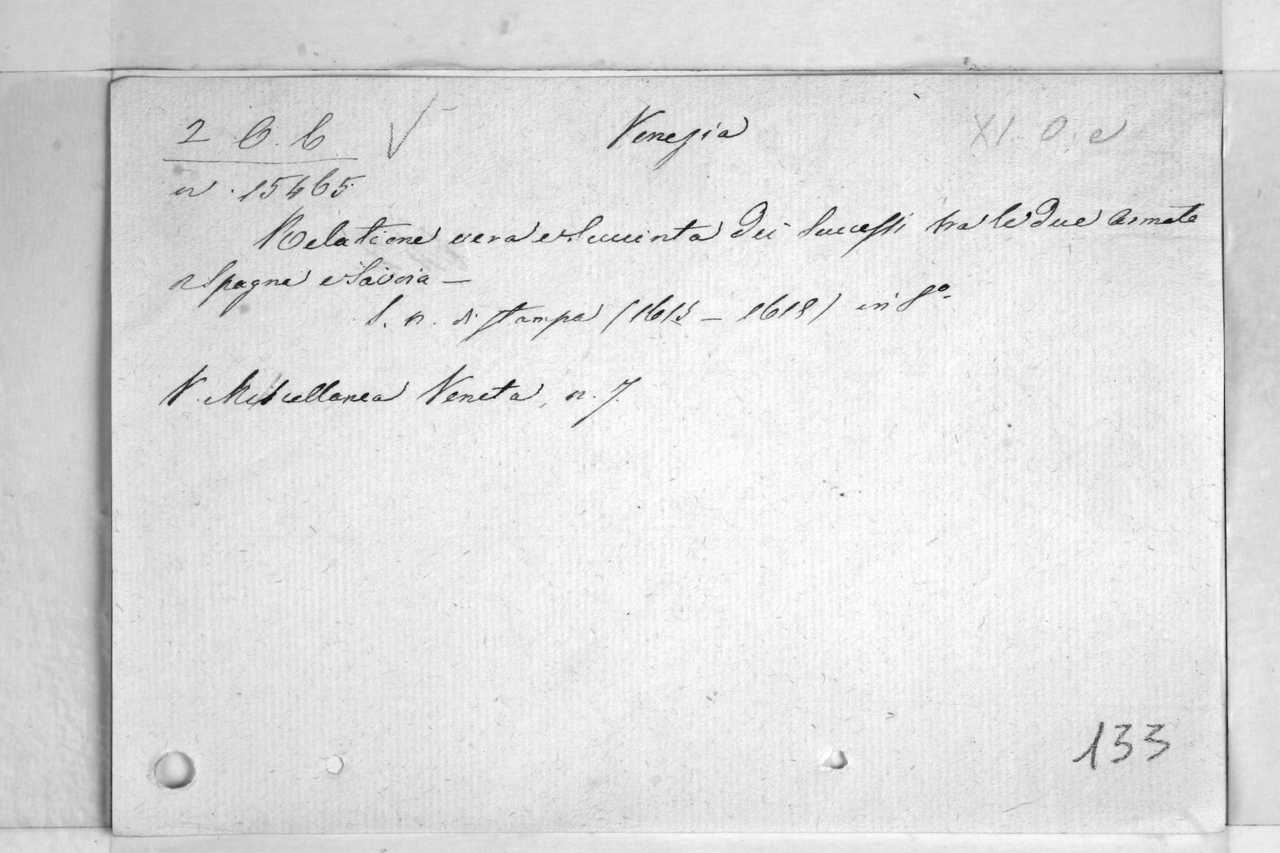 2 6. 6 Venezia XI. O. e
n. 15465
Relatione vera e succinta dei successi tra le due Armate
Spagna e Savoia —
S. n. di stampa (1615 — 1618) in 8º.
V. Miscellanea Veneta, n. 7.
133